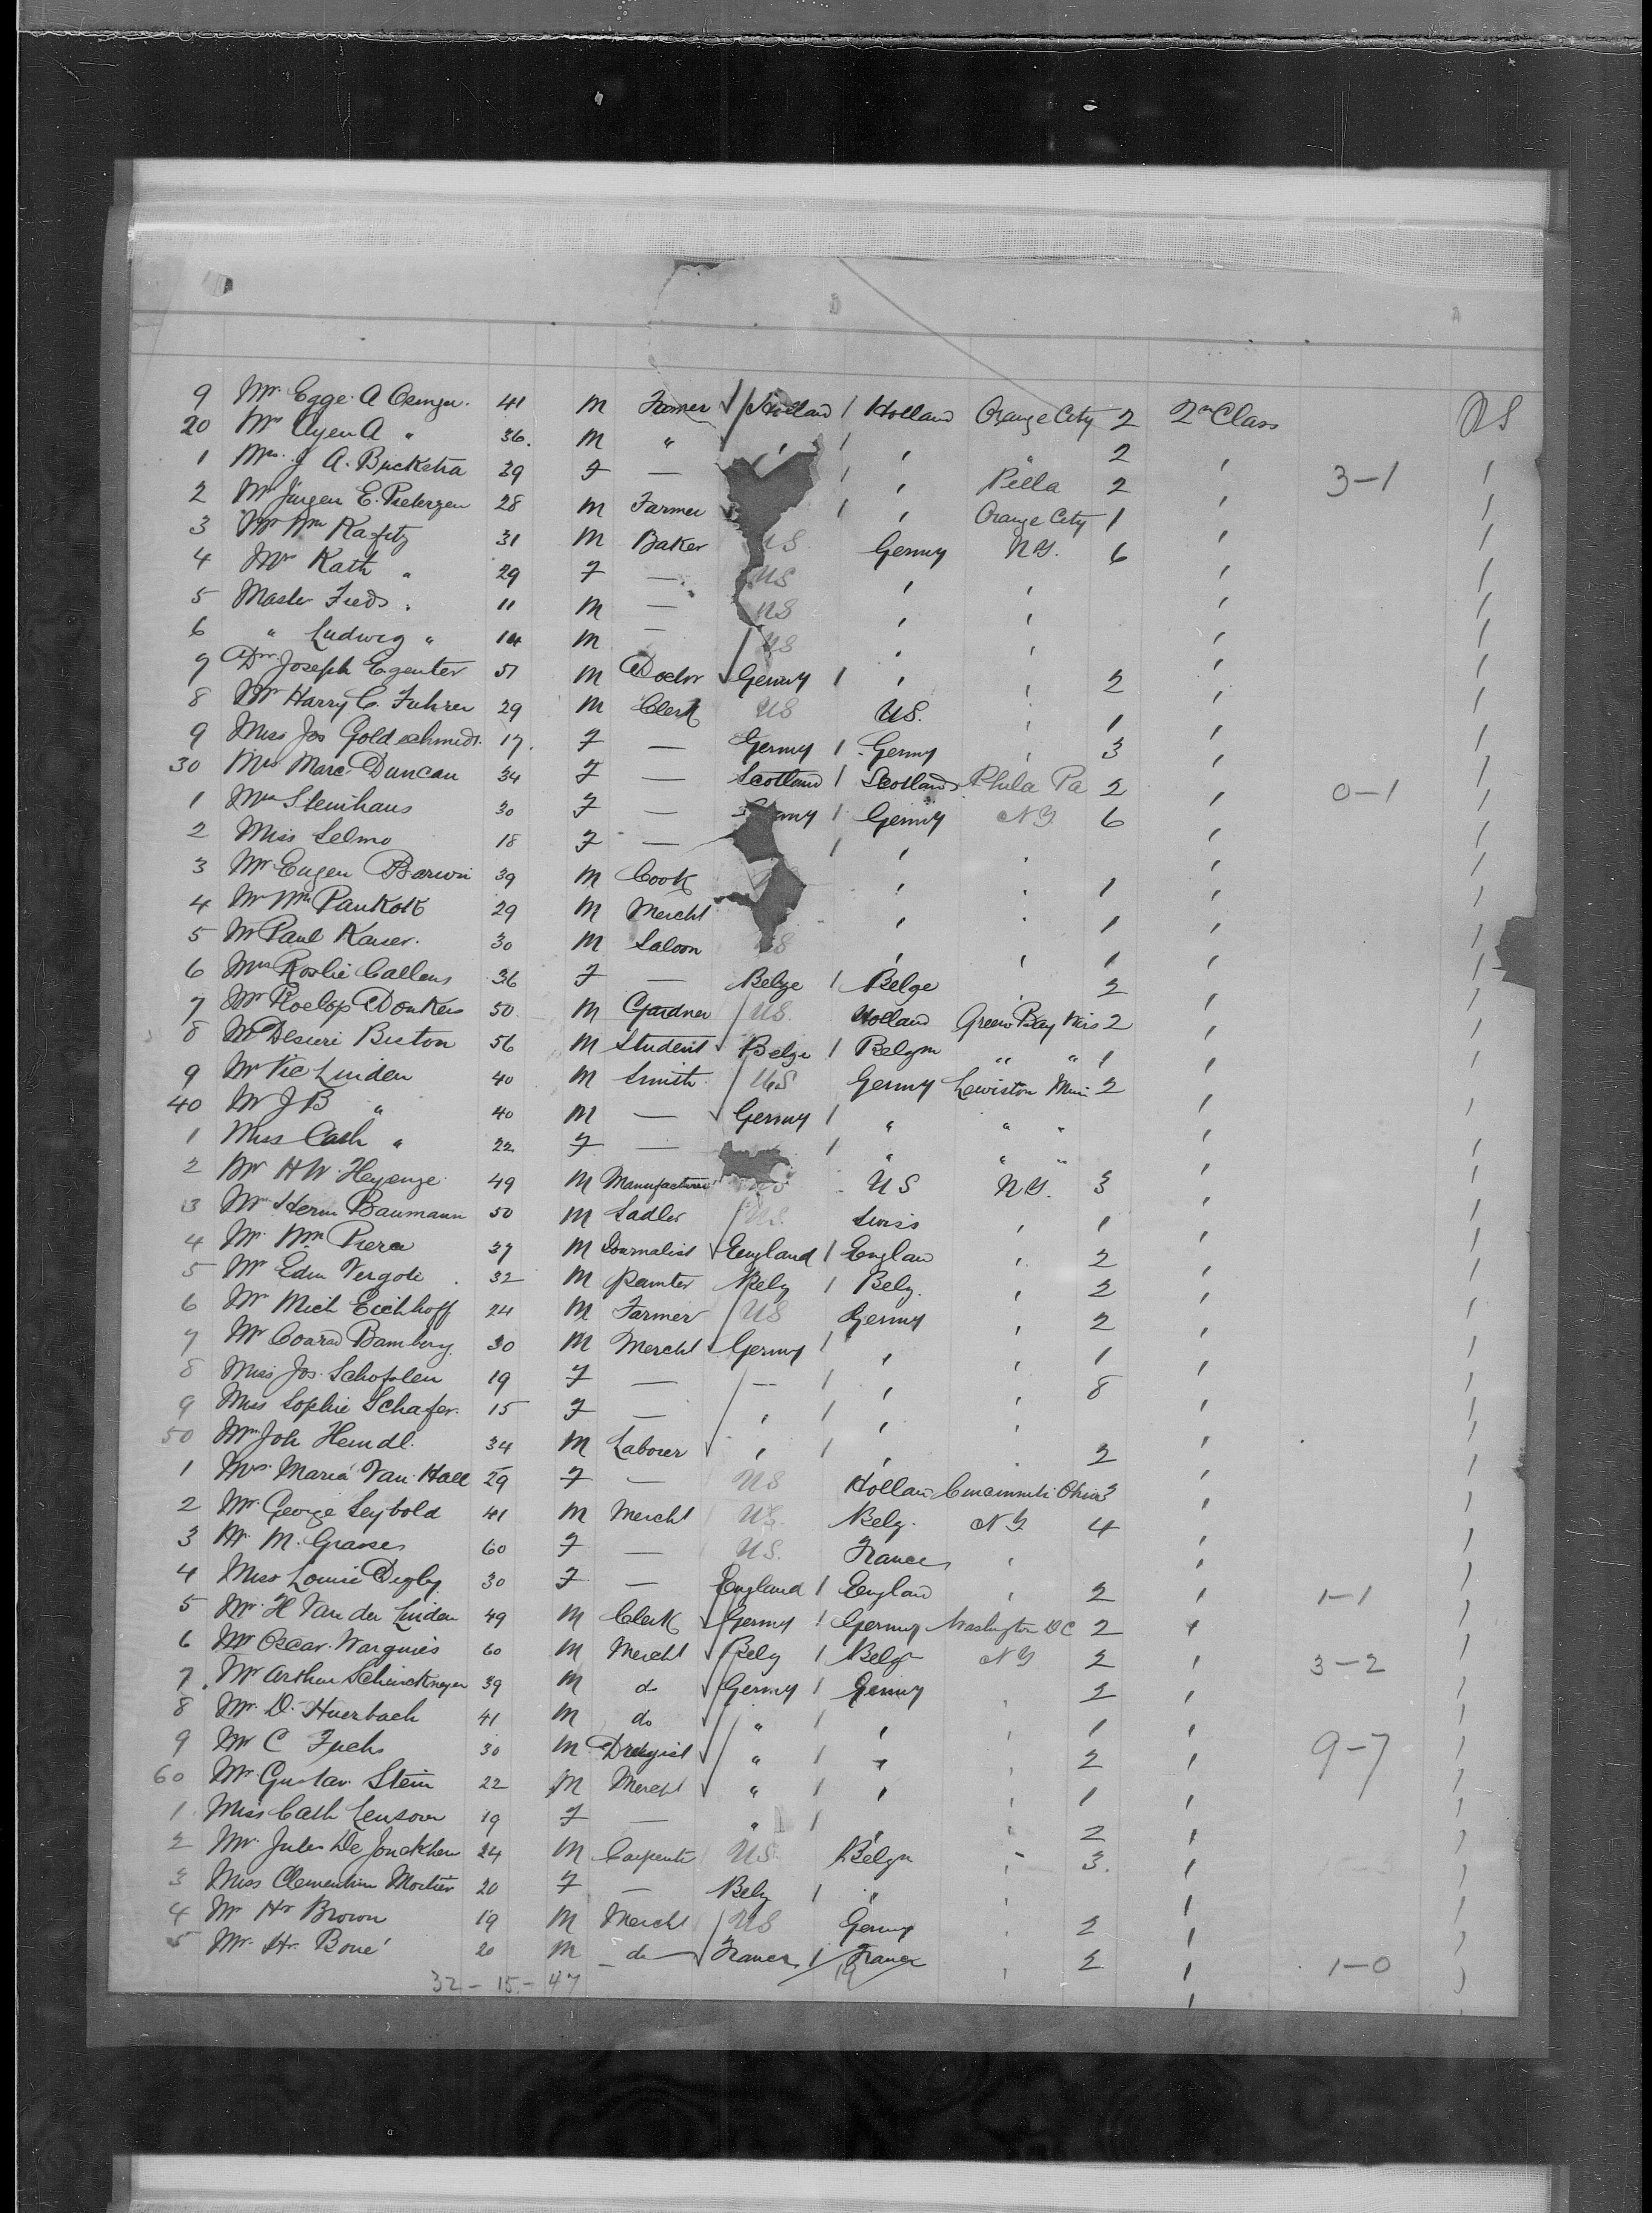 9 Mr. Egge A Osenga. 41 M Farmer Holland 1 Holland Orange City 2 2n Class US
20 Mr Ayen A " 36. M " , 1 , " 2 ,
1 Mrs. J A. Buckstra 39 F — 1 , Pella 2 , 3-1 1
2 Mr Jurgen E. Pietersen 28 M Farmer 1 , Orange City 1 , 1
3 Mr Wm Rafitz 31 M Baker US Germy N Y. 6 , 1
4 Mrs Kath " 29 F — US , , , 1
5 Master Freds . 11 M — US , , , 1
6 " Ludwig " 14 M — US , , , 1
7 Dr Joseph Egenter 51 M Doctor Germy 1 , , 2 , 1
8 Mr Harry C. Fuhrer 29 M Clerk US US. , 1 , 1
9 Miss Jos Goldschmidt. 17. F — Germy 1 Germy , 3 , 1
30 Mrs Marc. Duncan 34 F — Scotland 1 Scotland Phila Pa 2 , 0-1 1
1 Mrs Steinhaus 30 F — Germy 1 Germy N Y 6 , 1
2 Miss Selma 18 F — 1 , , , 1
3 Mr Eugen Barwin 39 M Cook , , 1 , 1
4 Mr Wm Pankok 29 M Mercht , , 1 , 1
5 Mr Paul Kaiser. 30 M Saloon US , , 1 , 1
6 Mrs Roslie Callens 36 F — Belge 1 Belge , 2 , 1
7 Mr Roelop Donkers 50 M Gardner US. Holland Green Bay Wis 2 , 1
8 Mr Desiere Biston 56 M Student Belge 1 Belgm " " 1 , 1
9 Mr Vic Linden 40 M Smith US Germy Lewiston Min 2 , 1
40 Mr J B " 40 M — Germy 1 " " " , 1
1 Miss Cath " 22 F — 1 " " " , 1
2 Mr H W. Heyenge 49 M Manufacturer US US N Y. 3 , 1
3 Mr Herm Baumann 50 M Sadler US. Swiss , 1 , 1
4 Mr. Wm 37 M Journalist England 1 Englan , 2 , 1
5 Mr Edm Vergote 32 M Painter Belg 1 Belg. , 2 , 1
6 Mr Mich Eichhoff 24 M Farmer US Germy , 2 , 1
7 Mr Conrad Bamberg. 30 M Mercht Germy 1 , , 1 , 1
8 Miss Jos. Schofslen 19 F — — 1 , , 8 , 1
9 Miss Sophie Schafer. 15 F — , 1 , , , 1
50 Mr Joh Heindl. 34 M Laborer , 1 , , 2 , 1
1 Mrs. Maria Van Hall 29 F — US Hollan Cincinnati Ohio 3 , 1
2 Mr. George Seybold 41 M Mercht US. Belg. N Y 4 , 1
3 Mr M. Grasses 60 F — US. France , , 1
4 Miss Louise Digby 30 F — England 1 Englan , 2 , 1-1 1
5 Mr. H Van der Linden 49 M Clerk Germy 1 Germy Washington DC 2 , 1
6 Mr Oscar Warguies 60 M Mercht Belg 1 Belgm N Y 2 , 3-2 1
7 Mr Arthur 39 M do Germy 1 Germy , 2 , 1
8 Mr. D. Huerbach 41 M do " 1 , , 1 , 1
9 Mr C Fuchs 30 M Drugist " 1 , , 2 , 9-7 1
60 Mr. Gustav Stein 22 M Mercht " 1 , , 1 , 1
1 Miss Cath Lensover 19 F — " 1 , , 2 , 1
2 Mr. Jules De Jonckheer 24 M Carpente US Belgm , 3. , 1
3 Miss Clementine Mortier 20 F — Belg 1 " , , 1
4 Mr Hr Brown 19 M Mercht US Germy , 2 , 1
5 Mr. Hr. Boné 20 M do France 1 France , 2 , 1-0 1
32 - 15 - 47 19